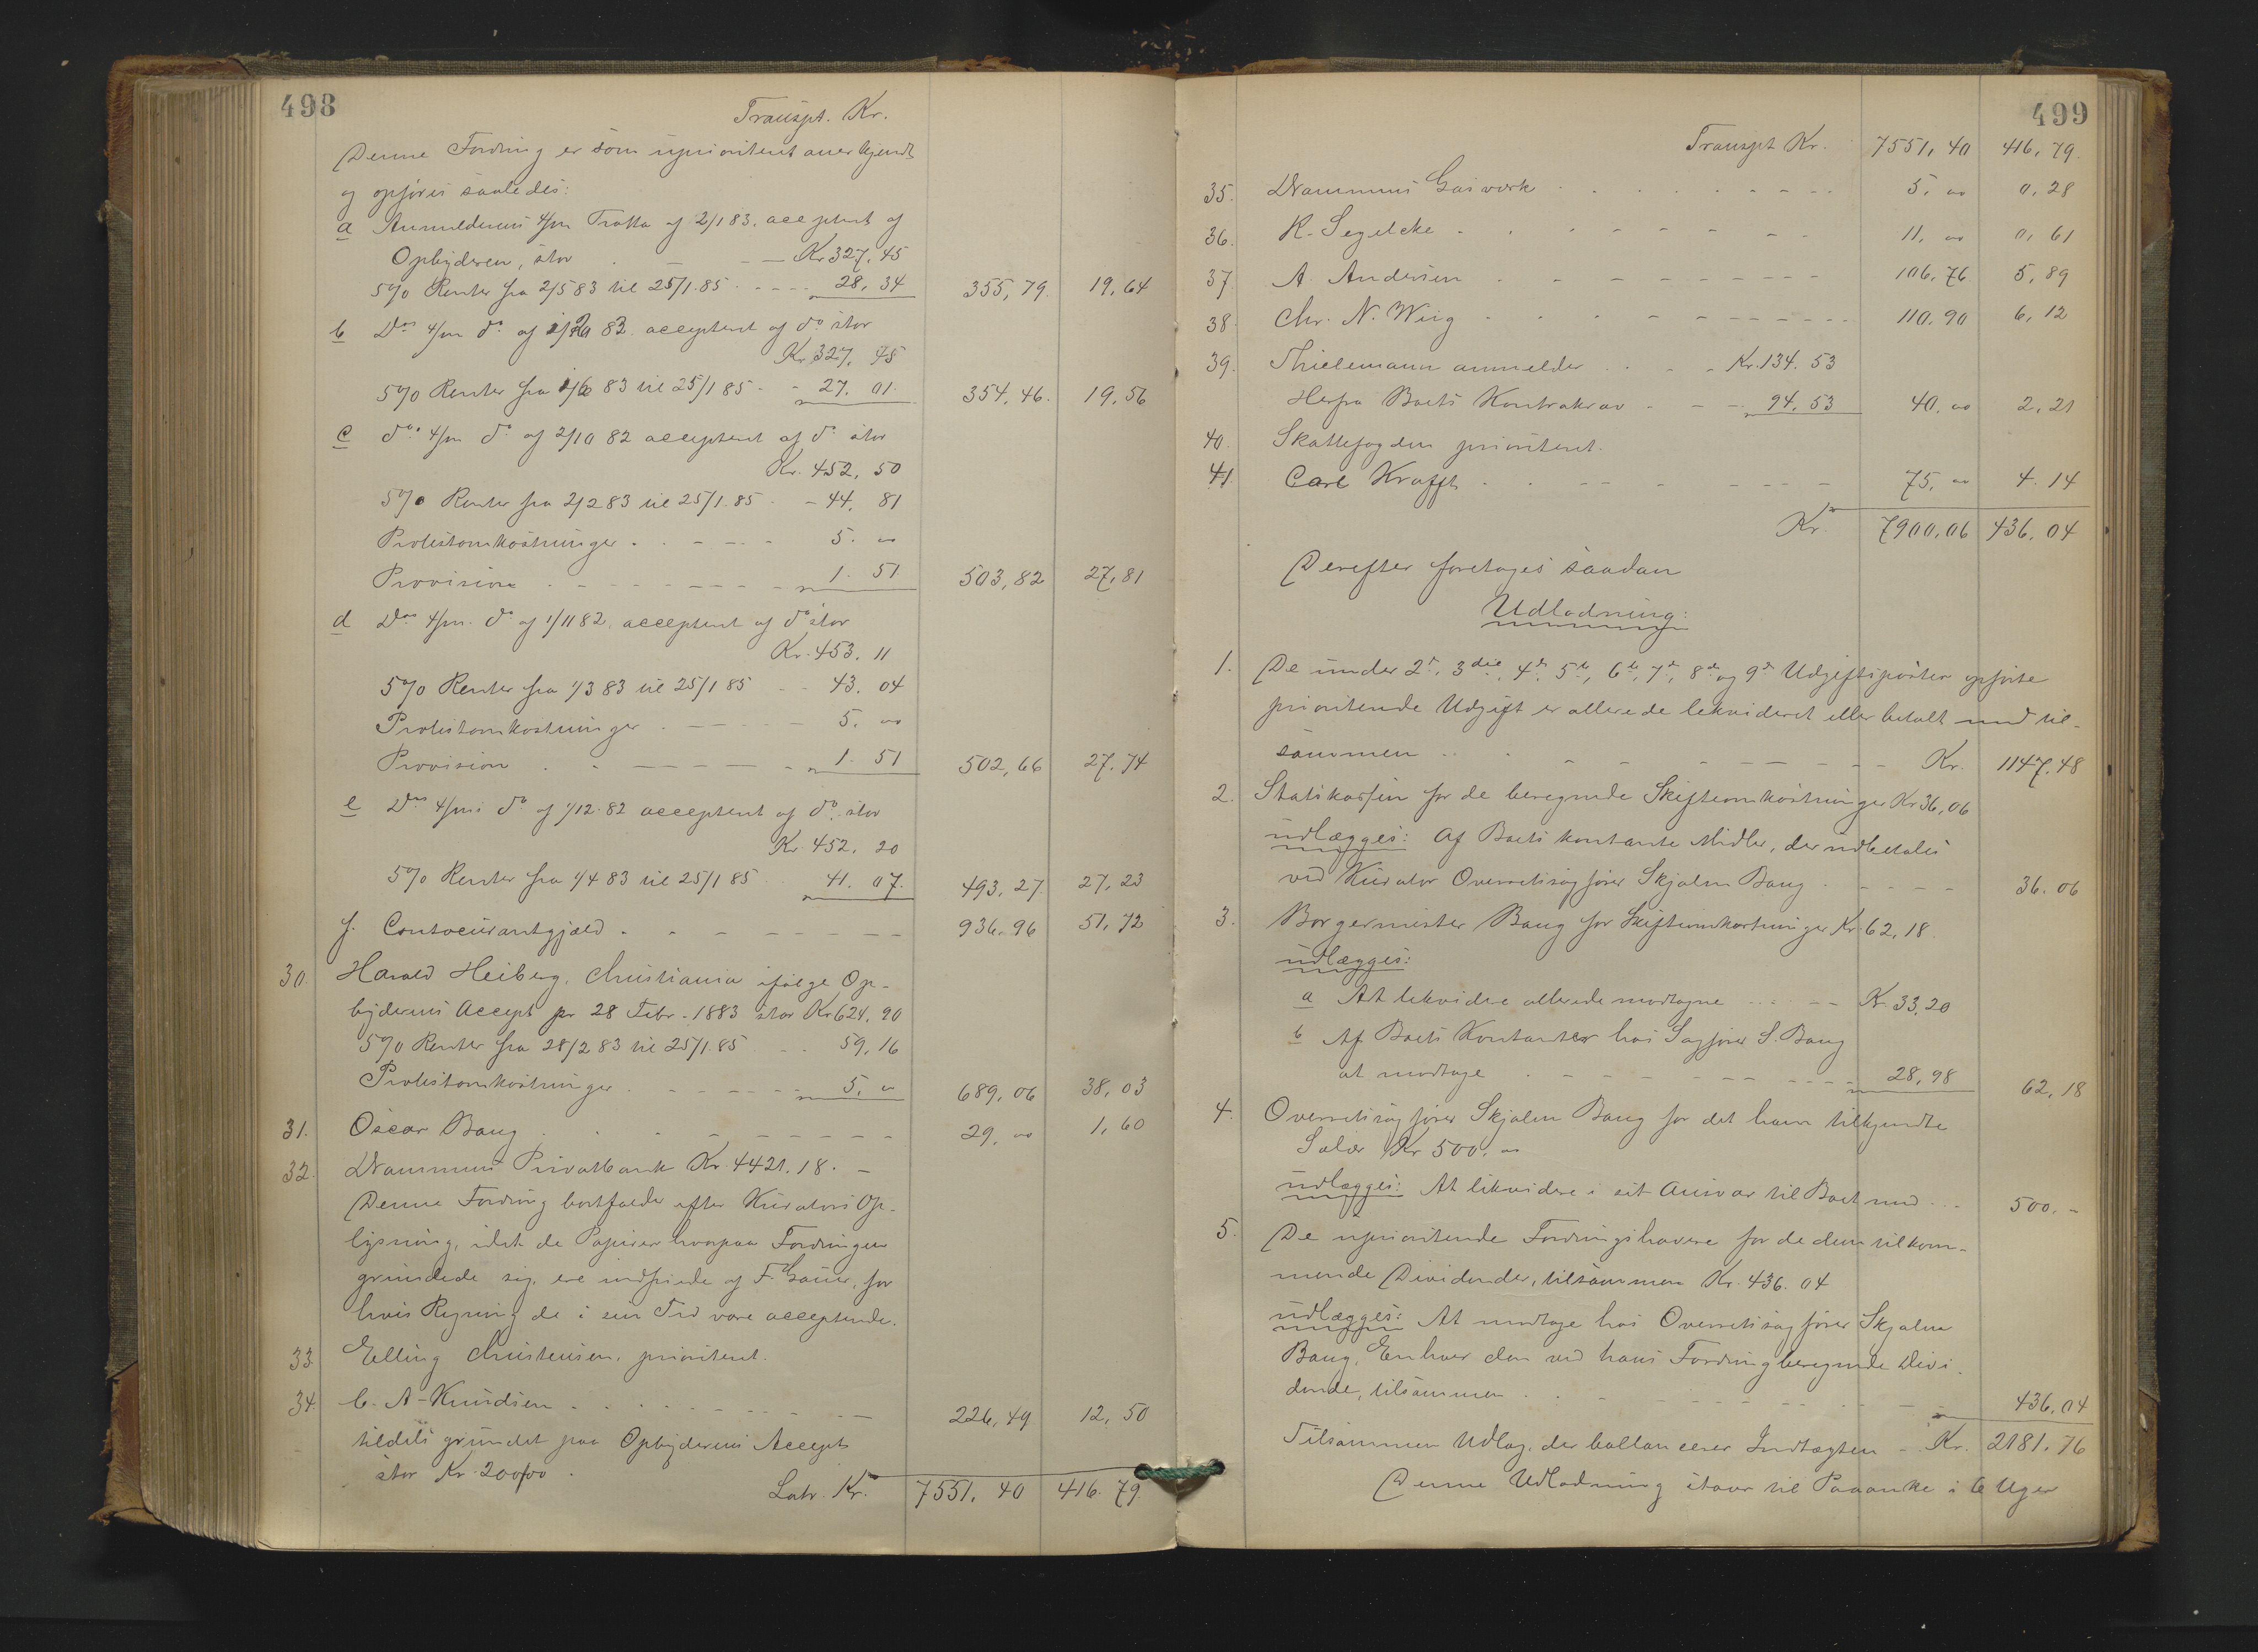 498
Transpt. Kr.
Denne Fordring er som uprioritert anerkjendt
og opføres saaledes:
a Anmelderens 4/m Tratta af 2/1 83. acceptert af
Opbyderen, stor - - Kr 327,45
5% Renter fra 2/5 83 til 25/1.85 - - - 28,34 355,79. 19,64
b Do 4/m do af 1/2 83. acceptert af do stor
Kr. 327,45
5% Renter fra 1/6 83 til 25/1 85 - - 27.01. 354,46. 19,56
c do 4/m do af 2/10 82 acceptert af do stor
Kr. 452,50
5% Renter fra 2/2 83 til 25/1.85 - - 44,81
Protestomkostninger - - - - 5. "
Provision - - - - 1.51 503,82 27,81
d Do 4/m. do af 1/11 82, acceptert af do stor
Kr. 453.11
5% Renter fra 1/3 83 til 25/1 85 - - 43.04
Protestomkostninger - - - - 5. "
Provision - - - - 1.51 502,66 27.74
e Do 4/m do af 1/12.82 acceptert af do stor
Kr. 452.20
5% Renter fra 1/4 83 til 25/1 85 41.07. 493,27. 27,23
f. Contocurantgjæld - - - - 936.96 51,72
30. Harald Heiberg, Christiania ifølge Op-
byderens Accept pr 28 Febr. 1883 stor Kr 624,90
5% Renter fra 28/2 83 til 25/1.85 - - 59,16
Protestomkostninger - - - - 5, " 689,06 38,03
31. Oscar Baug - - - - 29, " 1,60
32. Drammens Privatbank Kr. 4421.18. -
Denne Fordring bortfalder efter Kurators Op-
lysning, idet de Papirer hvorpaa Fordringen
grundede sig, ere indfriede af F. Gauer, for
hvis Regning de i sin Tid vare accepterede.
33. Elling Christensen, prioritert.
34. C. A. Knudsen - - - - 226,49 12,50
tildels grundet paa Opbyderens Accept
stor Kr. 200/00.
Latr. Kr. 7551.40 416.79
499
Transpt Kr. 7551,40 416,79.
35. Drammens Gasværk - - - - 5, " 0,28
36. K. Segelcke - - - - 11, " 0,61
37. A. Andersen - - - - 106,76 5,89
38. Chr. N. Wiig - - - - 110.90 6,12
39. Thielemann anmelder - - Kr. 134.53
Herfra Boets Kontrakrav - - - 94.53 40. " 2,21
40. Skattefogden prioritert.
41. Carl Krafft - - - - 75, " 4.14
Kr. 7900,06 436,04
Derefter foretages saadan
Udlodning:
1. De under 2de, 3die, 4de, 5te, 6te, 7de, 8de og 9de Udgiftsposter opførte
prioriterede Udgift er allerede likvideret eller betalt med til-
sammen - - - - Kr. 1147,48
2. Statskassen for de beregnede Skifteomkostninger Kr 36,06
udlægges: Af Boets kontante Midler, der udbetales
ved Kurator Overretssagfører Skjalm Baug - - - - 36.06
3. Borgermester Baug for Skifteomkostninger Kr. 62,18
udlægges:
a At likvidere allerede modtagne - - - Kr. 33,20
b Af Boets Kontanter hos Sagfører S. Baug
at modtage - - - - 28,98 62,18
4. Overretssagfører Skjalm Baug for det ham tilkjendte
Salær Kr 500, "
udlægges: At likvidere i sit Ansvar til Boet med - - 500. -
5. De uprioriterede Fordringshavere for de dem tilkom-
mende Dividender, tilsammen Kr. 436.04
udlægges: At modtage hos Overretssagfører Skjalm
Baug, Enhver den ved hans Fordring beregnede Divi-
dende, tilsammen - - - - 436.04
Tilsammen Udlæg, der ballancerer Indtægten - Kr. 2181.76
Denne Udlodning staar til Paaanke i 6 Uger